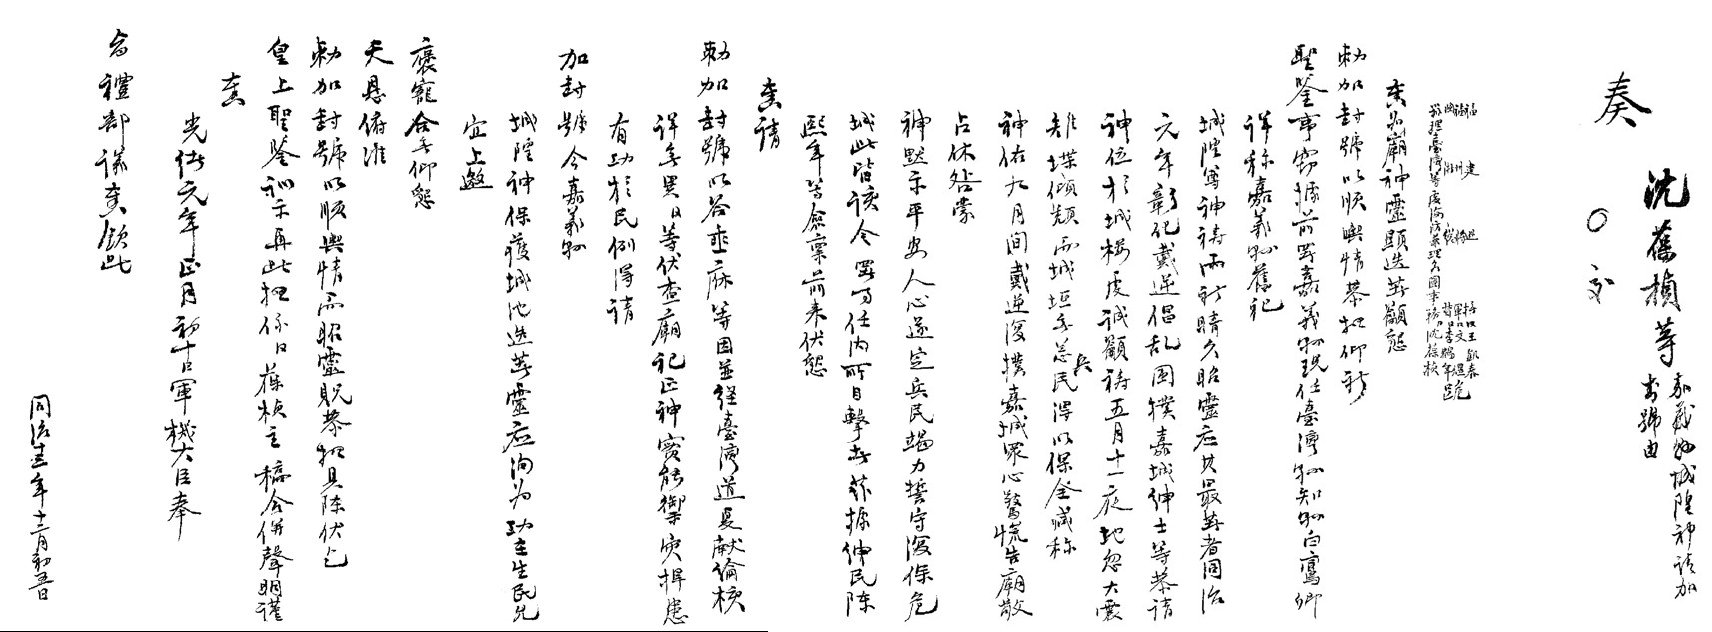 奏
沈葆楨等 嘉義縣城隍神請加
封號由
○ 交
奏為廟神靈顯迭著籲懇
勅加封號以順輿情恭摺仰祈
聖鑒事竊據前署嘉義縣現任臺灣縣知縣白鸞卿
詳称嘉義縣舊祀
城隍尊神禱雨祈晴久昭靈应其最著者同治
元年彰化戴逆倡乱圍撲嘉城紳士等恭請
神位於城樓虔誠籲禱五月十一夜地忽大震
雉堞傾頹而城垣無恙兵民得以保全咸称
神佑九月間戴逆復撲嘉城眾心驚慌告廟敬
占休咎蒙
神默示平安人心遂定兵民竭力誓守復保危
城此皆該令署
任內所目擊者茲據紳民陳
熙年等僉稟前来伏懇
奏請
勅加封號以答神庥等因並経臺灣道夏献綸核
詳前来臣等伏查廟祀正神實能禦灾捍患
有功於民例得請
加封號今嘉義縣
城隍神保護城池迭著靈应洵为功在生民允
宜上邀
褒寵合無仰懇
天恩俯准
勅加封號以順輿情而昭靈貺恭摺具陳伏乞
皇上聖鑒訓示再此摺係臣葆楨主稿合併聲明謹
奏
光緒元年正月初十日軍機大臣奉
旨禮部議奏欽此
同治十三年十二月初五日